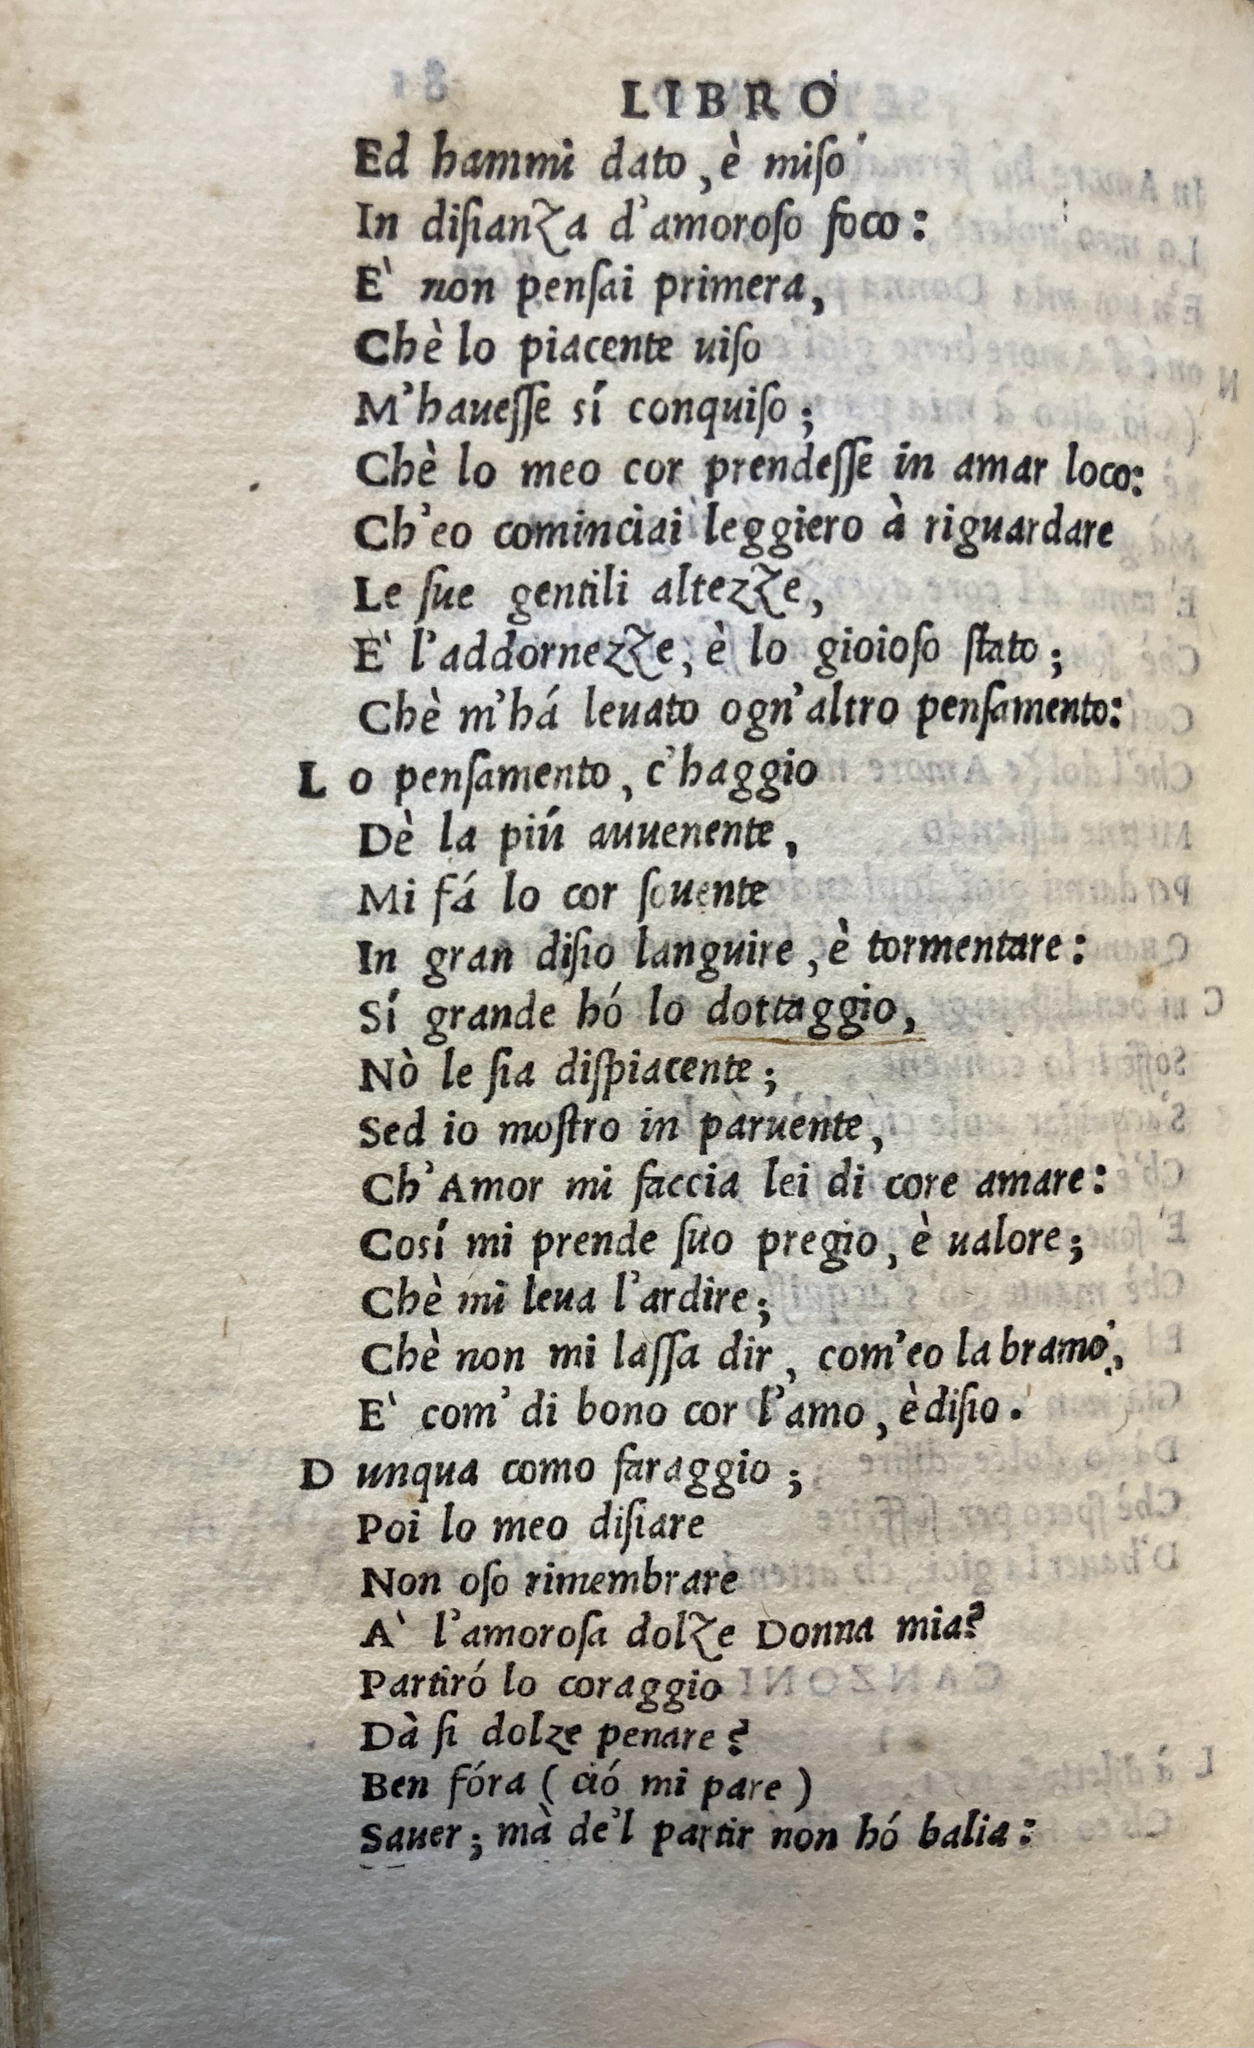 LIBRO
Ed hammi dato, è miſo
In diſianza d'amoroſo foco:
E' non penſai primera,
Chè lo piacente uiſo
M'haueſſe sí conquiſo;
Chè lo meo cor prendeſſe in amar loco:
Ch'eo cominciai leggiero à riguardare
Le ſue gentili altezze,
E' l'addornezze, è lo gioioſo ſtato;
Chè m'há leuato ogn'altro penſamento:
Lo penſamento, c'haggio
Dè la piú auuenente,
Mi fá lo cor ſouente
In gran diſio languire, è tormentare:
Sí grande hó lo dottaggio,
Nò le ſia diſpiacente;
Sed io moſtro in paruente,
Ch'Amor mi faccia lei di core amare:
Cosí mi prende ſuo pregio, è ualore;
Chè mi leua l'ardire;
Chè non mi laſſa dir, com'eo la bramo,
E' com' di bono cor l'amo, è diſio.
Dunqua como faraggio;
Poi lo meo diſiare
Non oſo rimembrare
A' l'amoroſa dolze Donna mia?
Partiró lo coraggio
Dà ſi dolze penare?
Ben fóra (ció mi pare)
Sauer; mà de'l partir non hó balia: